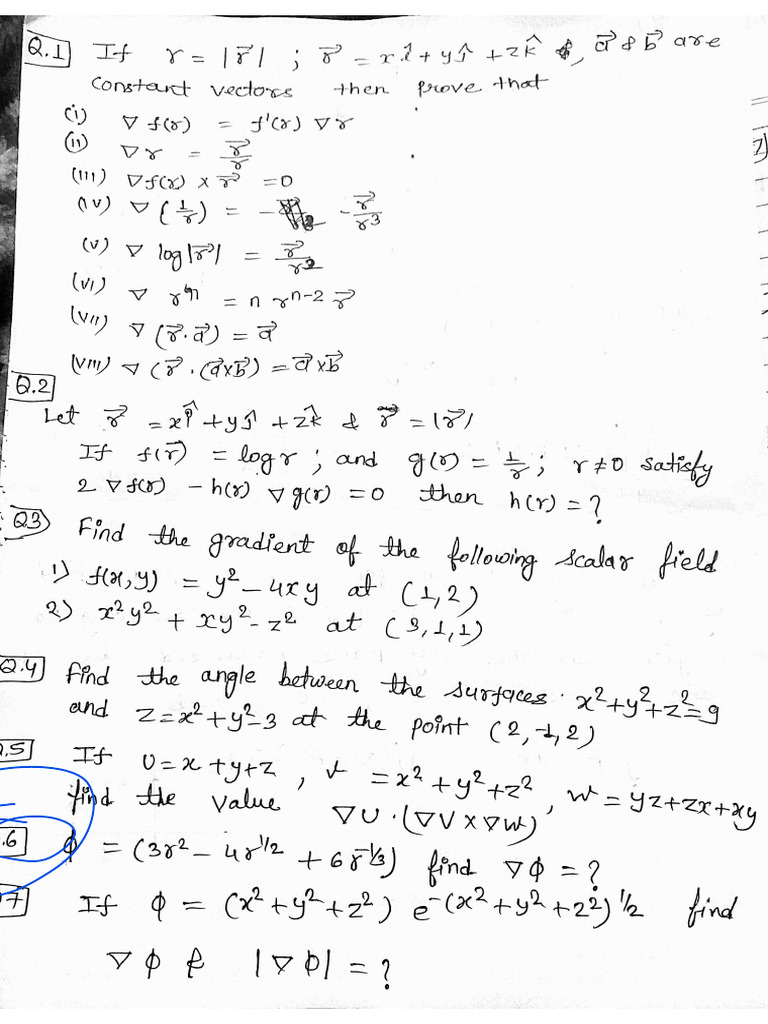 Q.1 If r = |r⃗| ; r⃗ = xî + yĵ + zk̂ &, a⃗ & b⃗ are
constant vectors then prove that
(i) ∇ f(r) = f'(r) ∇r
(ii) ∇r = r⃗/r
(iii) ∇f(r) × r⃗ = 0
(iv) ∇(1/r) = - r⃗/r³
(v) ∇ log|r⃗| = r⃗/r²
(vi) ∇ rⁿ = n rⁿ⁻² r⃗
(vii) ∇(r⃗·a⃗) = a⃗
(viii) ∇(r⃗·(a⃗×b⃗) = a⃗×b⃗
Q.2
Let r⃗ = xî + yĵ + zk̂ & r⃗ = |r⃗|
If f(r⃗) = log r ; and g(r) = 1/r ; r≠0 satisfy
2 ∇f(r) - h(r) ∇g(r) = 0 then h(r) = ?
Q3 Find the gradient of the following scalar field
1) f(x,y) = y² - 4xy at (1,2)
2) x²y² + xy² - z² at (3,1,1)
Q.4 find the angle between the surfaces x²+y²+z²=9
and z=x²+y²-3 at the point (2,-1,2)
.5 If U = x+y+z, V = x²+y²+z², W = yz+zx+xy
find the value ∇U·(∇V×∇W)
.6 ϕ = (3r² - 4r^1/2 + 6r^-1/3) find ∇ϕ = ?
7 If ϕ = (x²+y²+z²) e^-(x²+y²+z²)^1/2 find
∇ϕ & |∇ϕ| = ?